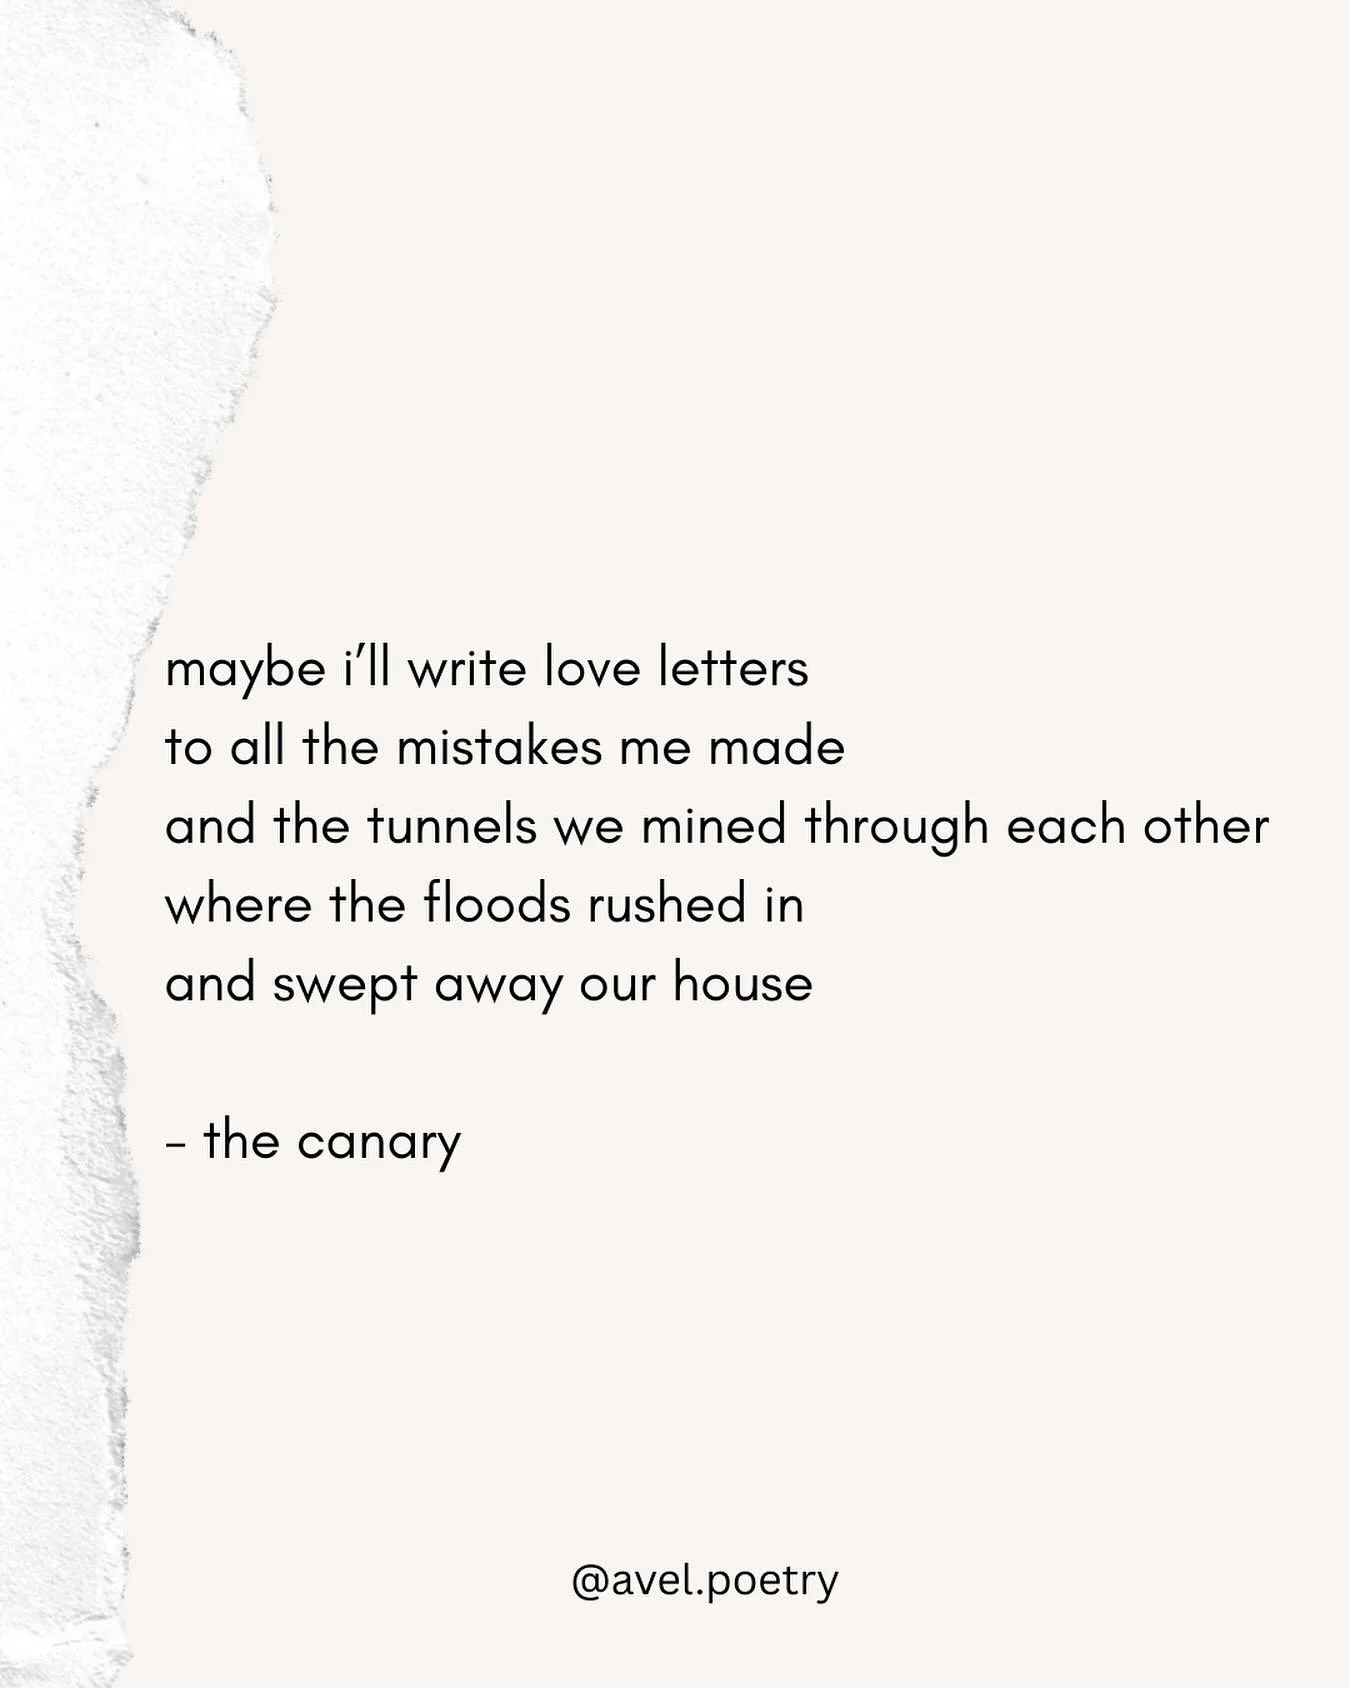 maybe i’ll write love letters
to all the mistakes me made
and the tunnels we mined through each other
where the floods rushed in
and swept away our house
- the canary
@avel.poetry